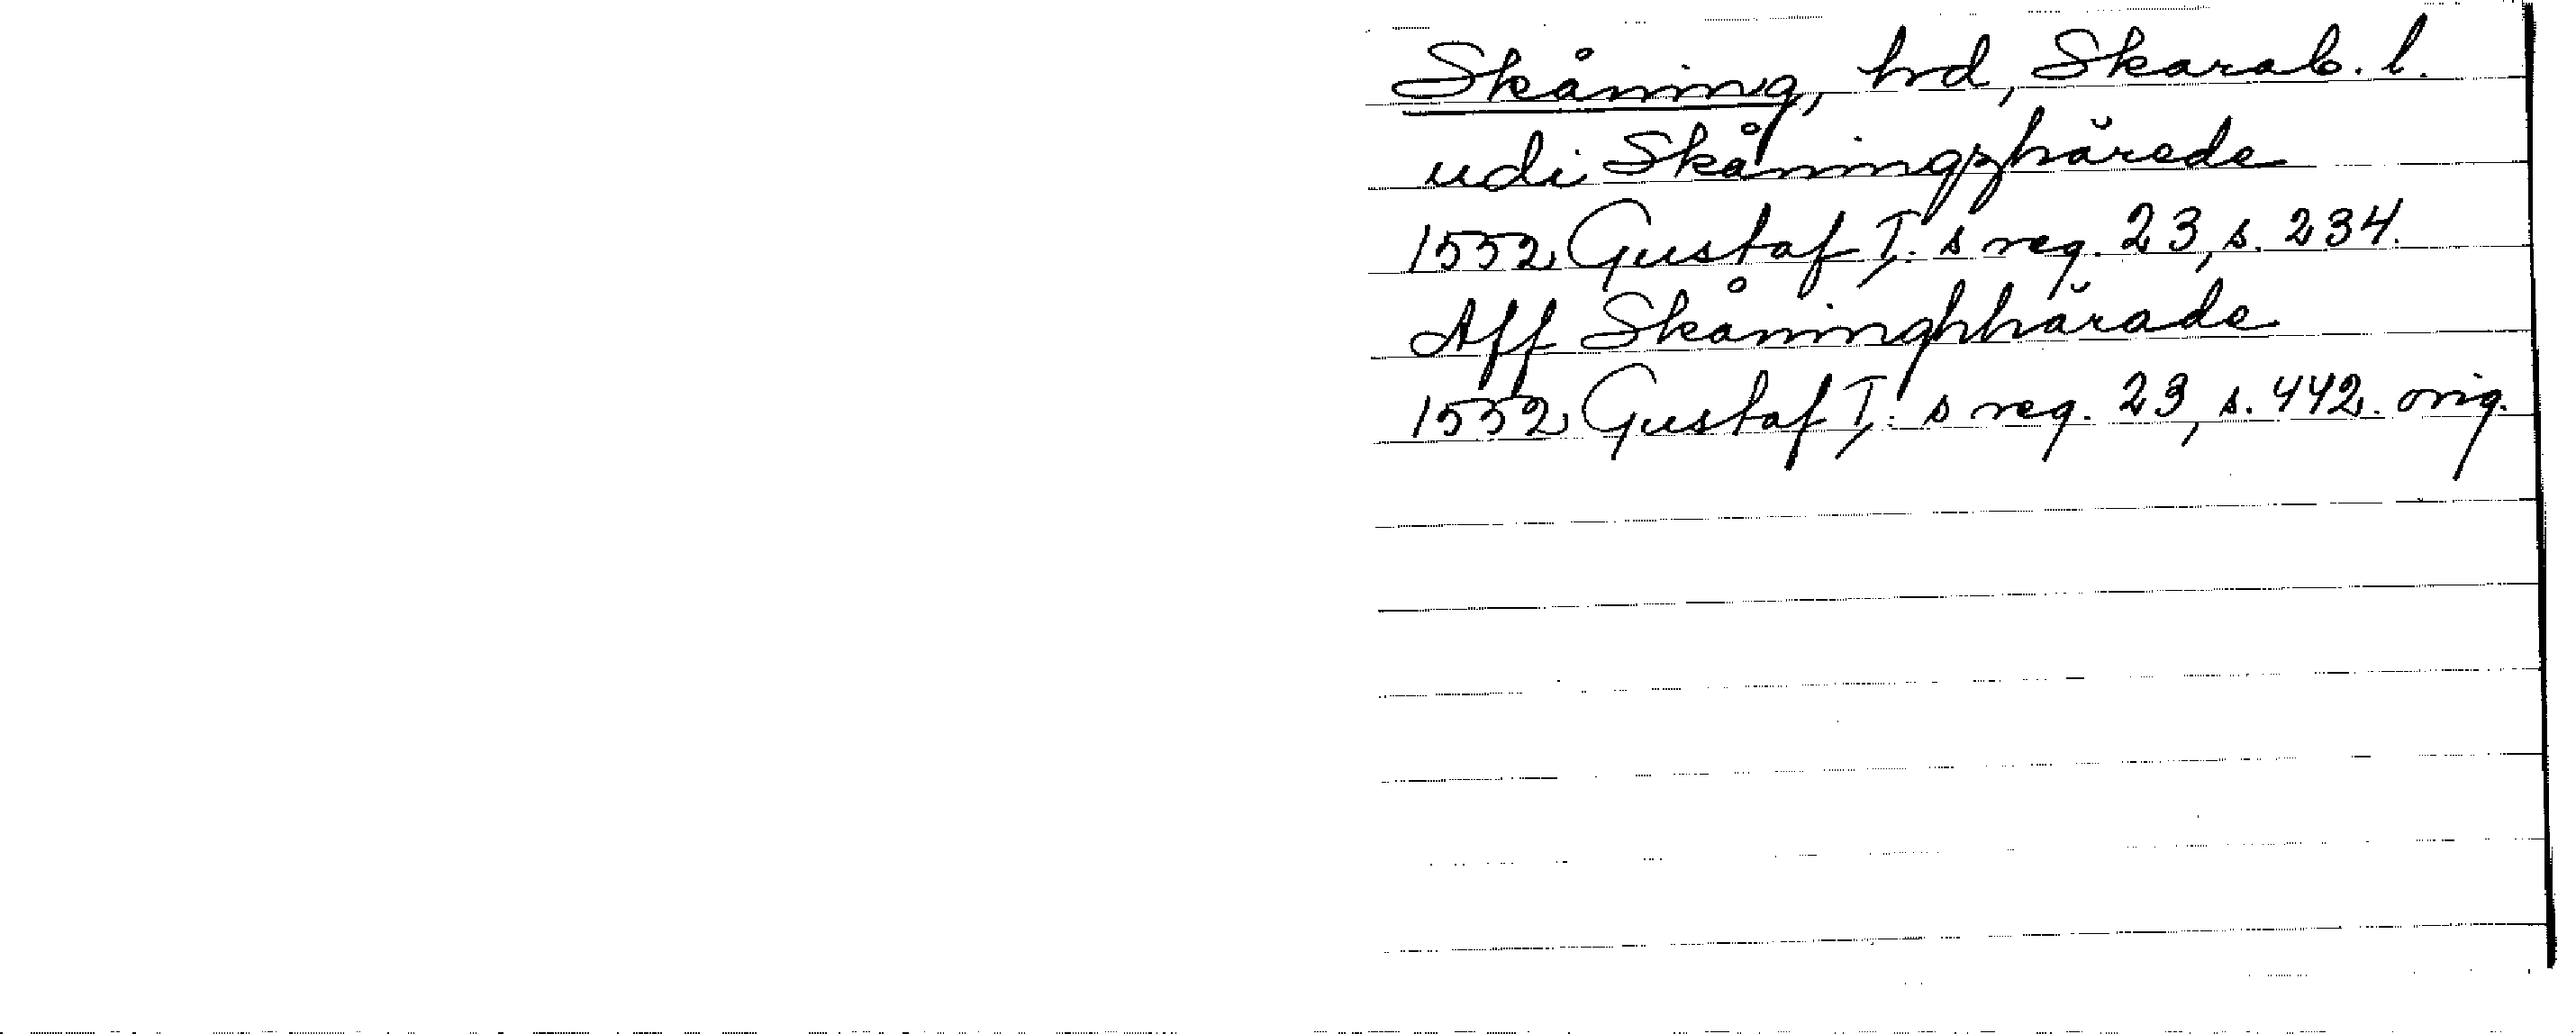 Skåning, hd, Skarab. l.
udi Skåningzhärede
1552 Gustaf I:s reg. 23, s. 234.
Aff Skåninghhärade
1552 Gustaf I:s reg. 23, s. 442. orig.